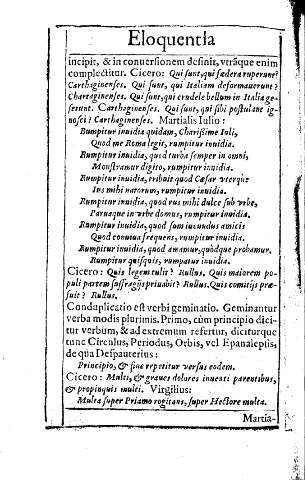 Eloquentia
incipit, & in conuersionem definit, vtrãque enim
complectitur. Cicero: Qui sunt, qui fœdera ruperunt?
Carthaginenses. Qui sunt, qui Italiam deformauerunt?
Chartaginenses. Qui sunt, qui crudele bellum in Italia ge-
serunt. Carthaginenses. Qui sunt, qui sibi postulant ig-
nosci? Carthaginenses. Martialis Iulio:
Rumpitur inuidia quidam, Charissime Iuli,
Quod me Roma legit, rumpitur inuidia.
Rumpitur inuidia, quod turba semper in omni,
Monstramur digito, rumpitur inuidia.
Rumpitur inuidia, tribuit quod Cæsar vterque
Ius mihi natorum, rumpitur inuidia.
Rumpitur inuidia, quod rus mihi dulce sub vrbe,
Paruaque in vrbe domus, rumpitur inuidia.
Rumpitur inuidia, quod sum iucundus amicis
Quod conuiua frequens, rumpitur inuidia.
Rumpitur inuidia, quod amamur, quòdque probamur.
Rumpitur quisquis, rumpatur inuidia.
Cicero: Quis legem tulit? Rullus. Quis maiorem po-
puli partem suffragijs priuabit? Rullus. Quis comitijs præ-
fuit? Rullus.
Conduplicatio est verbi geminatio. Geminantur
verba modis plurimis. Primo, cùm principio dici-
tur verbum, & ad extremum refertur, diciturque
tunc Circulus, Periodus, Orbis, vel Epanalepsis,
de qua Despauterius:
Principio, & fine repetitur versus eodem.
Cicero: Multi, & graues dolores inuenti parentibus,
& propinquis multi. Virgilius:
Multa super Priamo rogitans, super Hectore multa.
Martia-